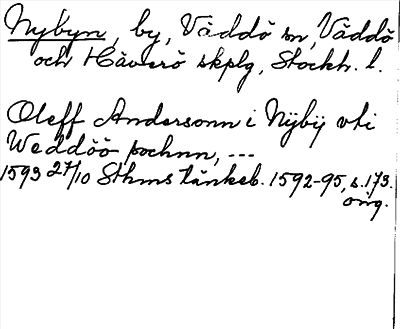 Nybyn, by, Väddö sn, Väddö
och Häverö skplg, Stockh. l.
Oleff Andersonn i Nÿbÿ vti
Weddöö sochnn, ---
1593 27/10 Sthms tänkeb. 1592-95, s. 173.
orig.